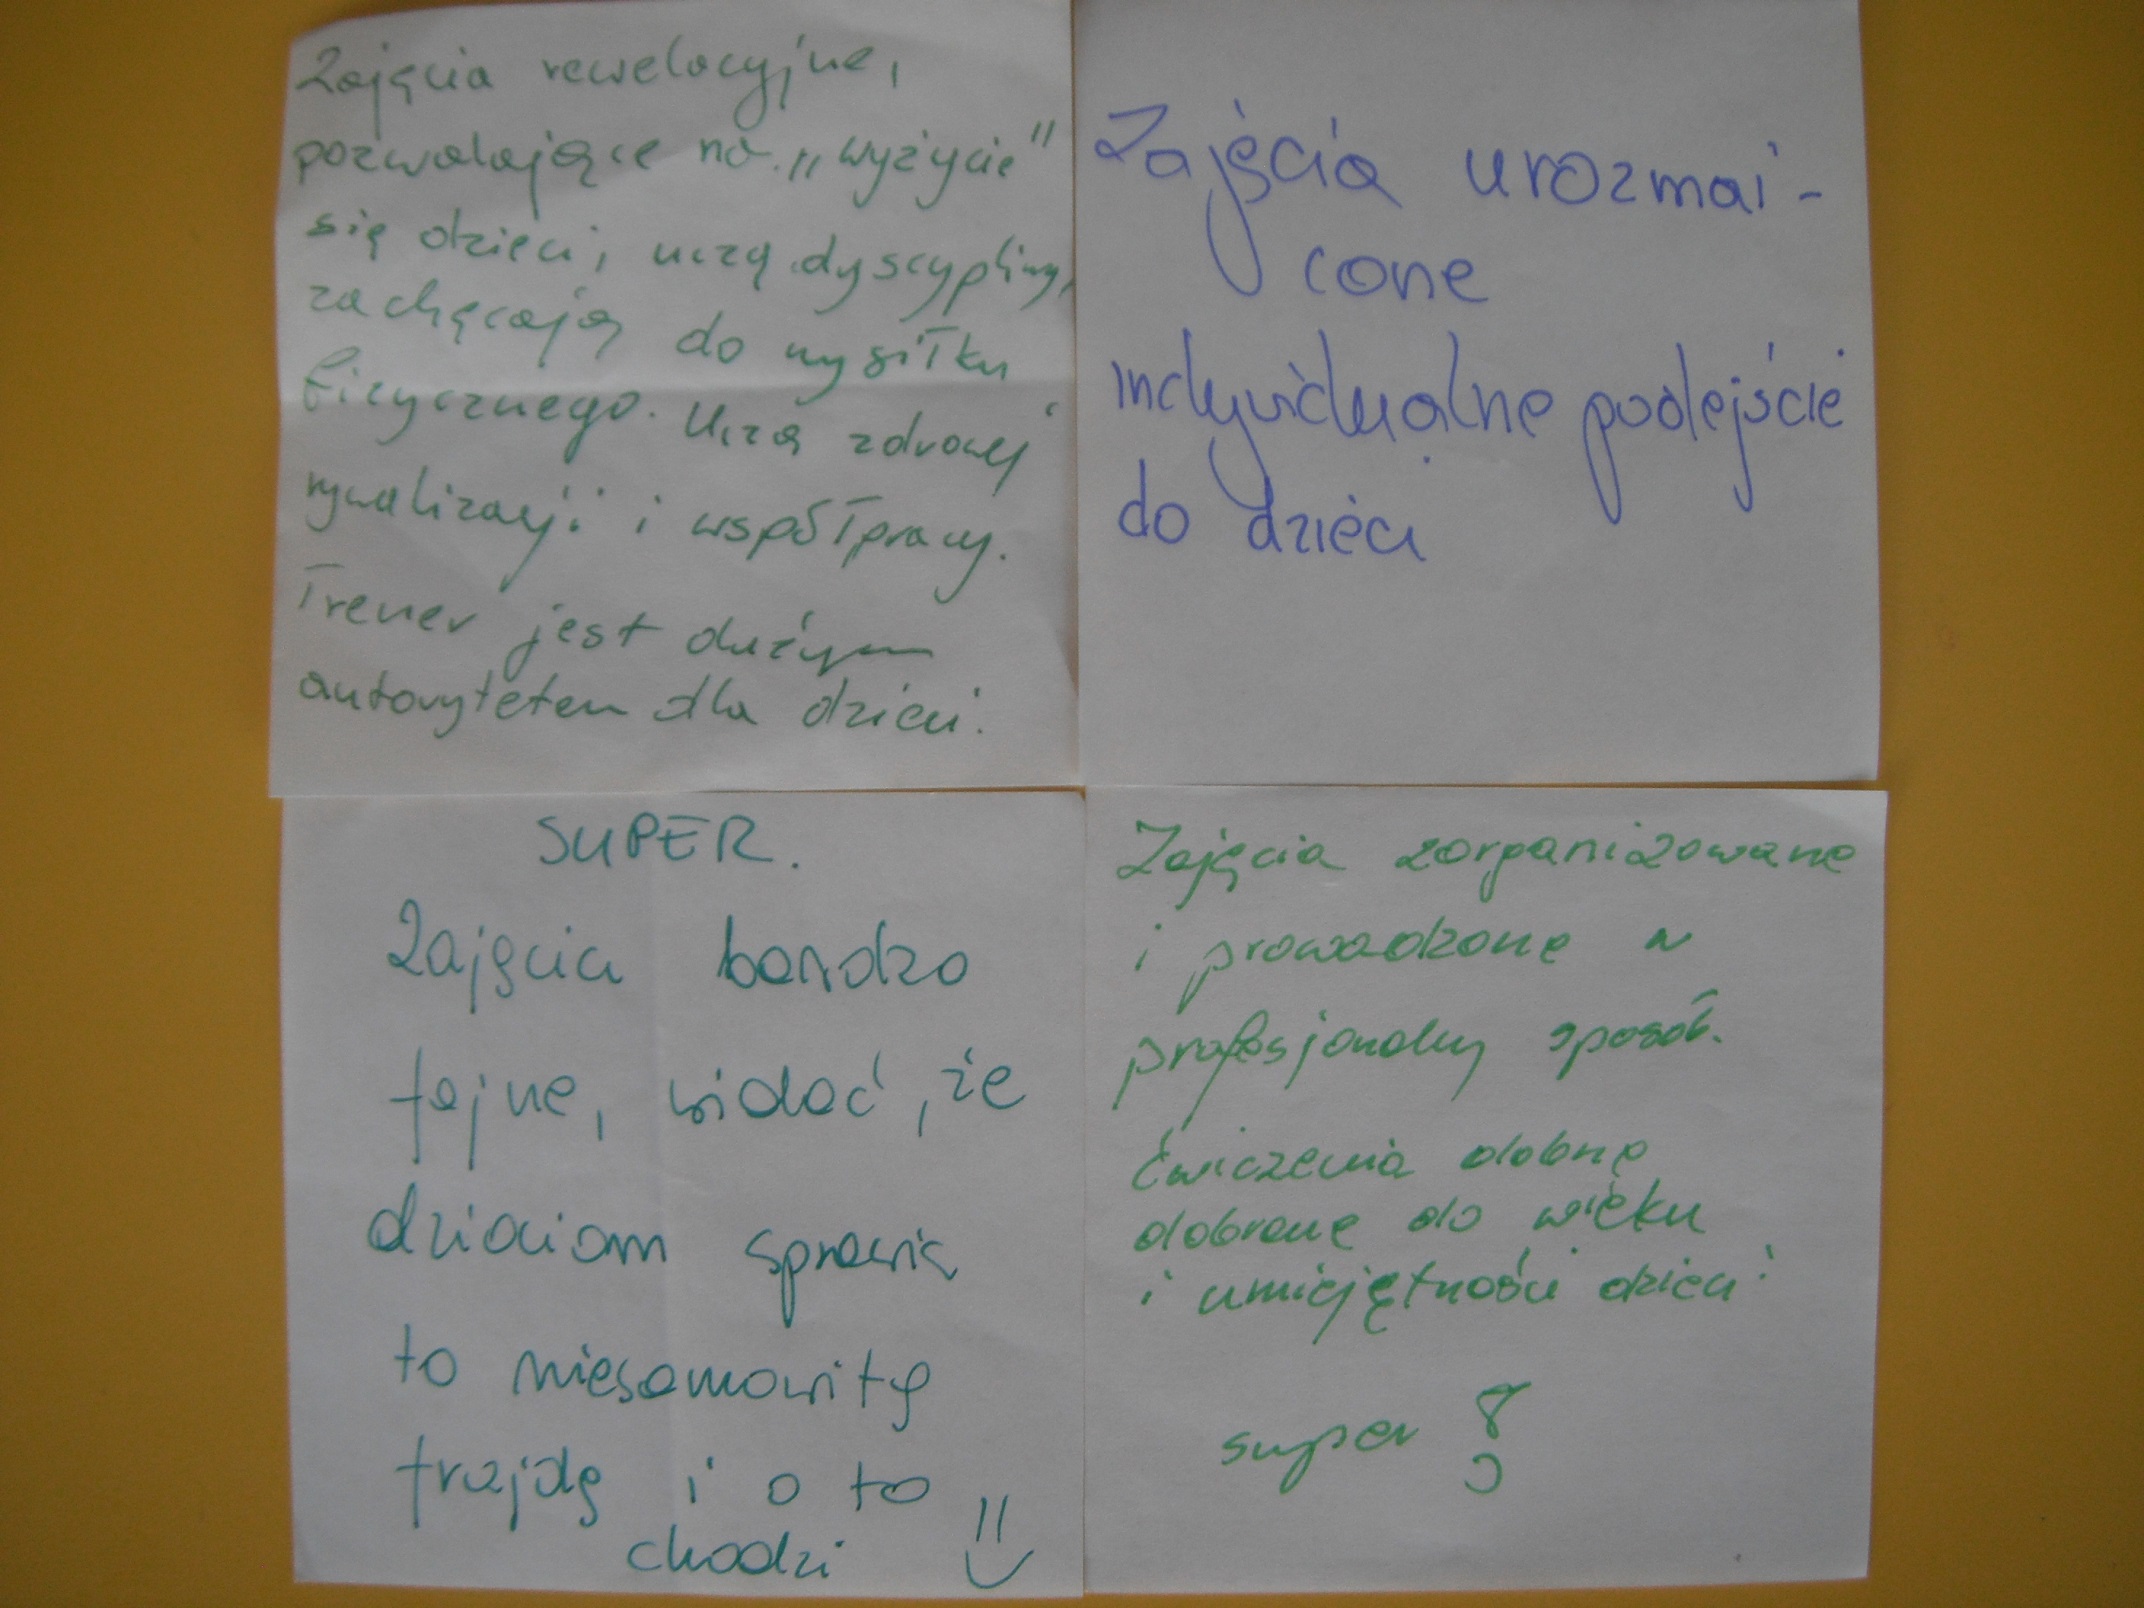 Zajęcia rewelacyjne,
pozwalające na „wyżycie"
się dzieci, uczą dyscypliny,
zachęcają do wysiłku
fizycznego. Uczą zdrowej
rywalizacji i współpracy.
Trener jest dużym
autorytetem dla dzieci.
Zajęcia urozmai-
cone
indywidualne podejście
do dzieci
SUPER.
Zajęcia bardzo
fajne, widać, że
dzieciom sprawia
to niesamowitą
frajdę i o to
chodzi
Zajęcia zorganizowane
i prowadzone w
profesjonalny sposób.
Ćwiczenia dobrze
dobrane do wieku
i umiejętności dzieci!
super !